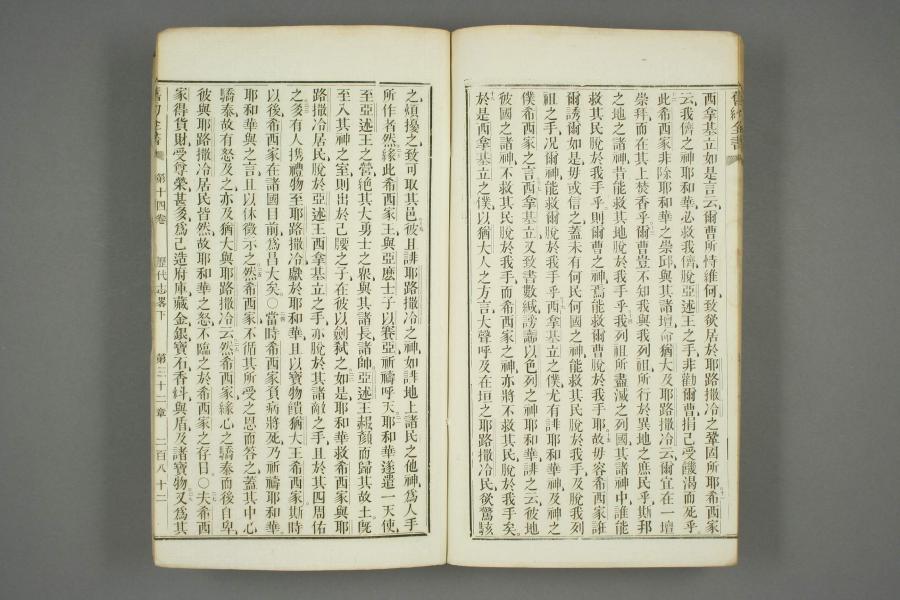 舊約全書
西拿基立如是言云爾曹所恃維何致欲居於耶路撒冷之鞏固所耶希西家
云我儕之神耶和華必救我儕脫亞述王之手非勸爾曹捐己受饑渴而死乎
此希西家非除耶和華之崇邱與其諸壇命猶大及耶路撒冷云爾宜在一壇
崇拜而在其上焚香乎爾曹豈不知我與我列祖所行於異地之庶民乎斯邦
之地之諸神昔能救其地脫於我手乎我列祖所盡滅之列國其諸神中誰能
救其民脫於我手乎則爾曹之神焉能救爾曹脫於我手耶故毋容希西家誑
爾誘爾如是毋或信之蓋未有何民何國之神能救其民脫於我手及脫我列
祖之手况爾神能救爾脫於我手乎西拿基立之僕尤有誹耶和華神及神之
僕希西家之言西拿基立又致書數緘謗讟以色列之神耶和華誹之云彼地
彼國之諸神不救其民脫於我手而希西家之神亦將不救其民脫於我手矣
於是西拿基立之僕以猶大人之方言大聲呼及在垣之耶路撒冷民欲驚駭
之煩擾之致可取其邑彼且誹耶路撒冷之神如誹地上諸民之他神爲人手
所作者然緣此希西家王與亞麽士子以賽亞祈禱呼天耶和華遂遣一天使
至亞述王之營絶其大勇士之衆與其諸長諸帥亞述王赧顔而歸其故土既
至入其神之室則出於己腰之子在彼以劍弑之如是耶和華救希西家與耶
路撒冷居民脫於亞述王西拿基立之手亦脫於其諸敵之手且於其四周佑
之多有人携禮物至耶路撒冷獻於耶和華且以寶物饋猶大王希西家斯時
以後希西家在諸國目前爲昌大矣○當時希西家負病將死乃祈禱耶和華
耶和華與之言且以休徵示之然希西家不循其所受之恩而答之蓋其中心
驕泰故有怒及之亦及猶大與耶路撒冷云然希西家緣心之驕泰而後自卑
彼與耶路撒冷居民皆然故耶和華之怒不臨之於希西家之存日○夫希西
家得貨財受尊榮甚多爲己造府庫藏金銀寶石香料與盾及諸寶物又爲其
舊約全書 第十四卷 歷代志畧下 第三十二章 二百八十二